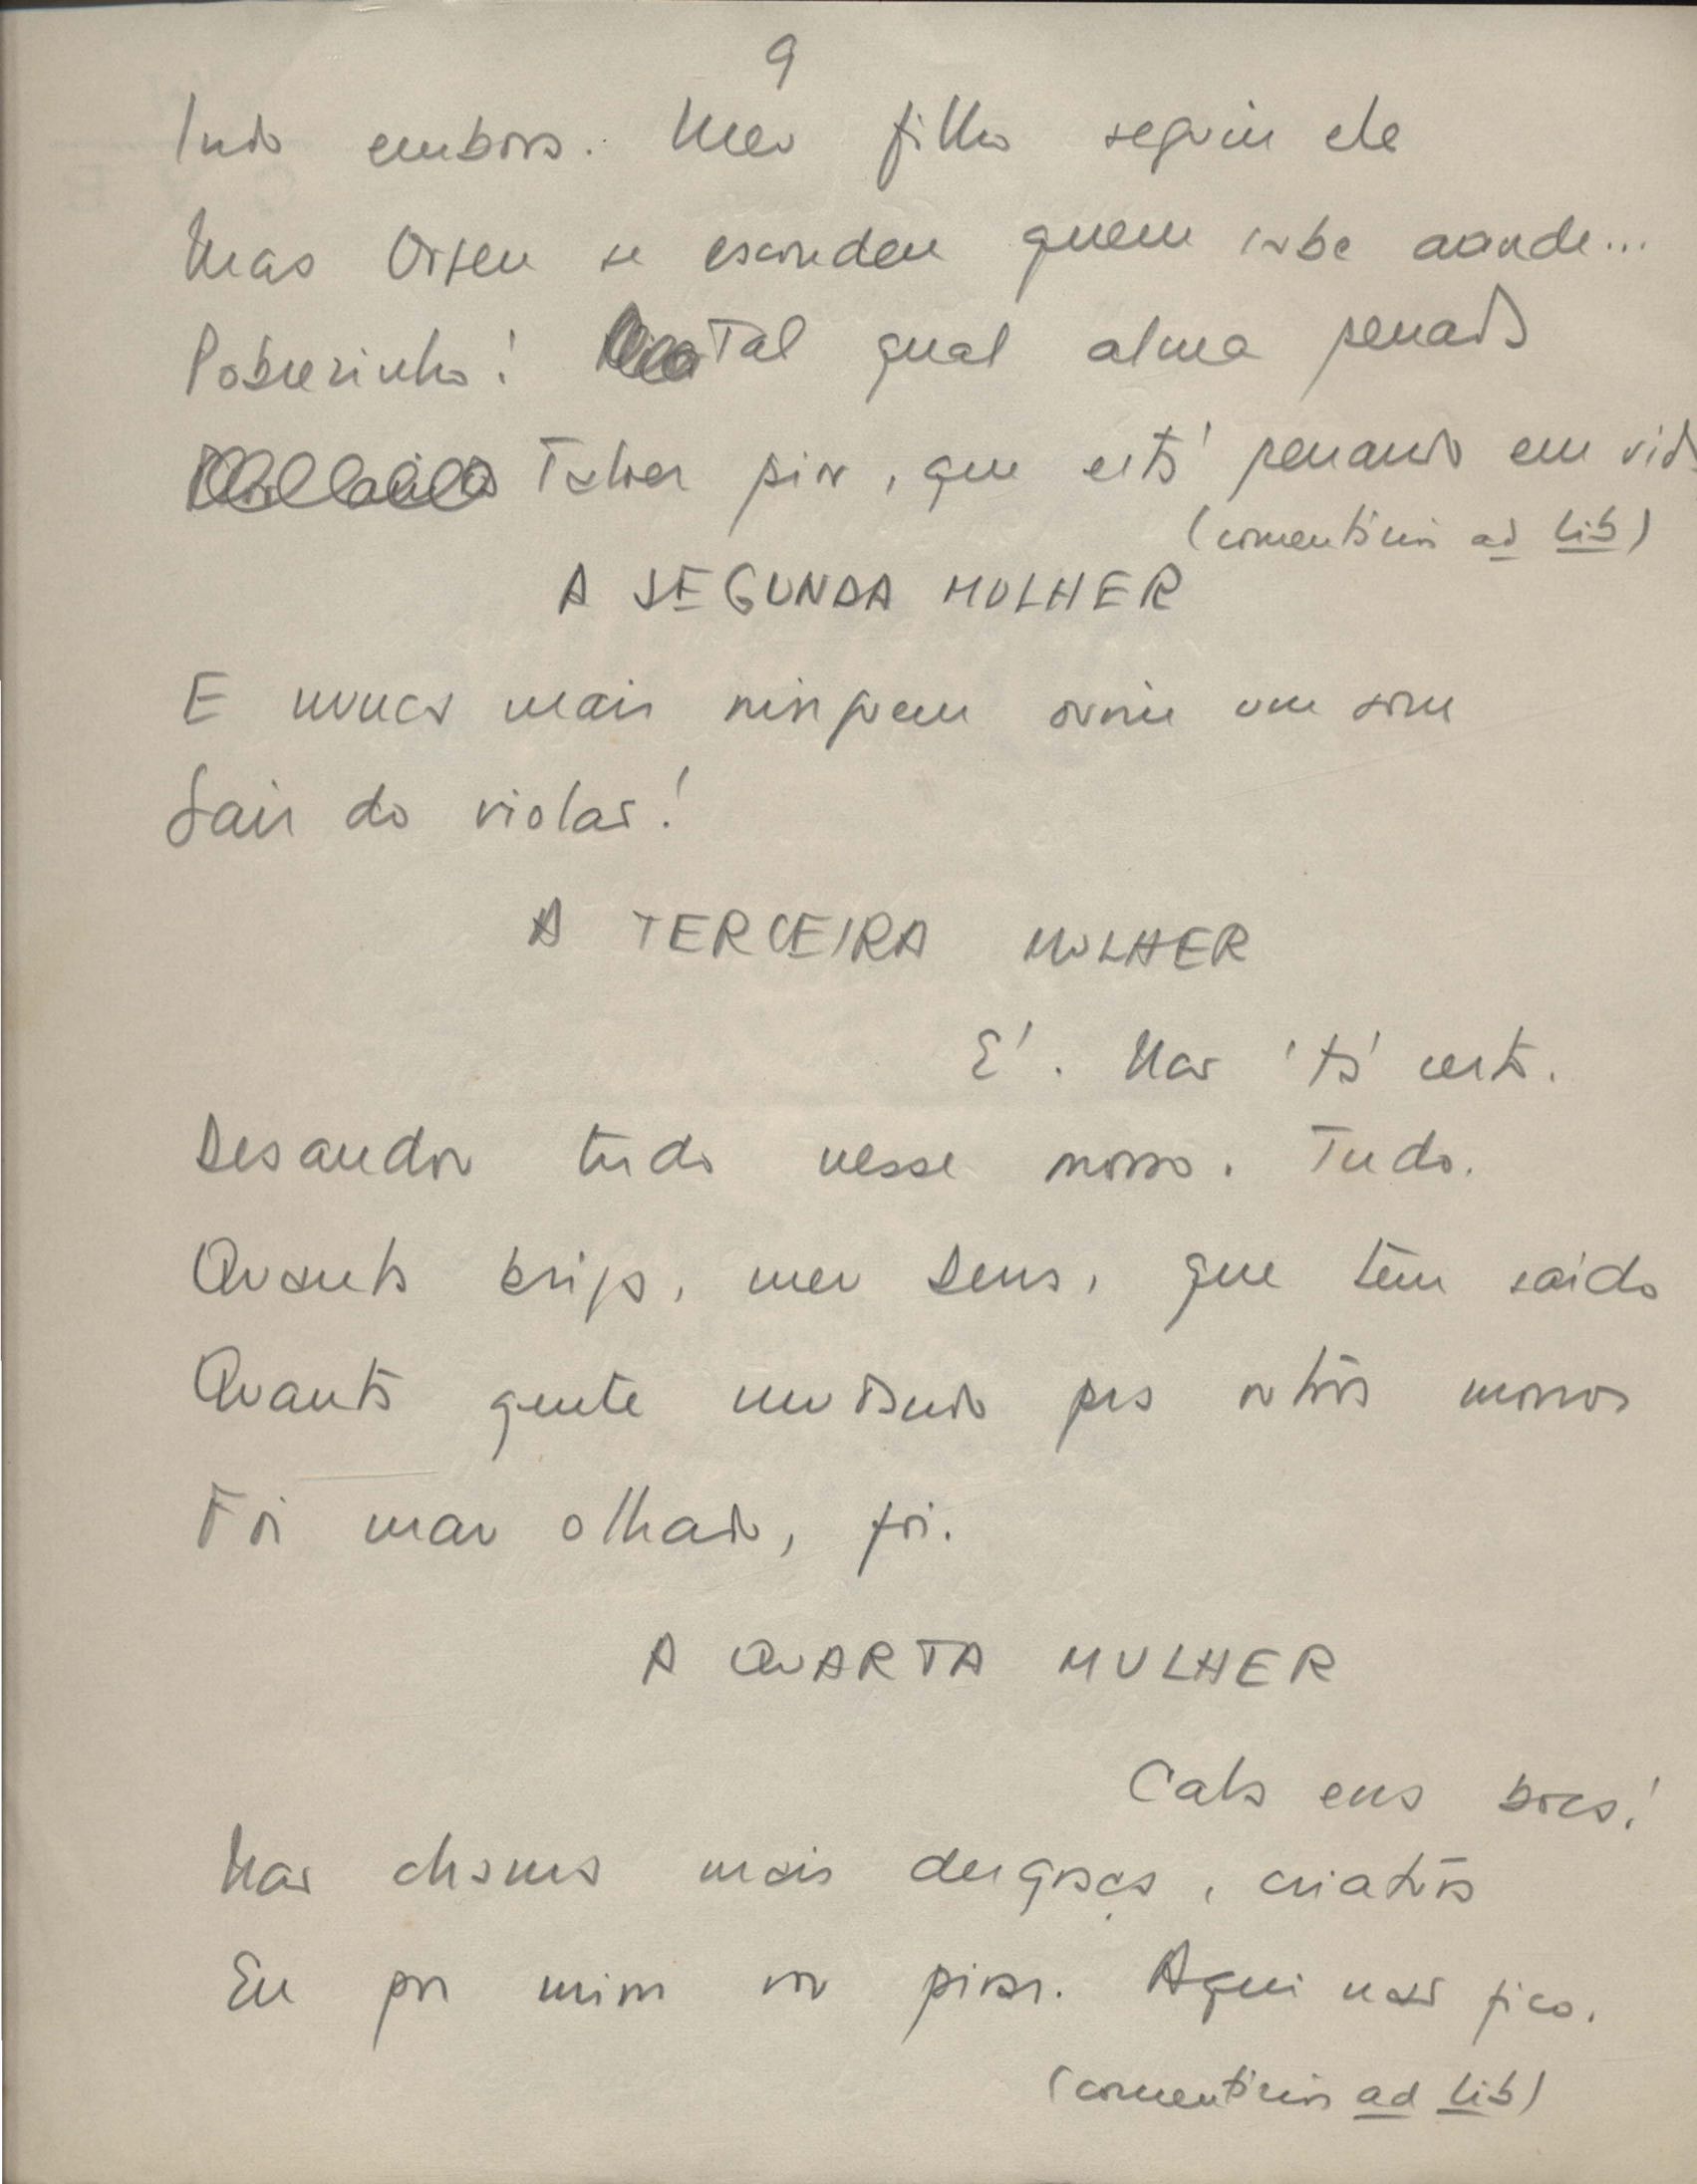 9
Indo embora. Meu filho seguiu ele
Mas Orfeu se escondeu quem sabe aonde...
Pobrezinho! Tal qual alma penada
Talvez pior, que está penando em vida
(comentários ad lib)
A SEGUNDA MULHER
E nunca mais ninguem ouviu um som
Sair do violão!
A TERCEIRA MULHER
E'. Mas 'tá certo.
Desandou tudo nesse morro. Tudo.
Quanta briga, meu Deus, que tem saido
Quanta gente mudando pra outros morros
Foi mau olhado, foi.
A QUARTA MULHER
Cala essa boca!
Não chama mais desgraça, criatura
Eu por mim vou pirar. Aqui não fico.
(comentários ad lib)